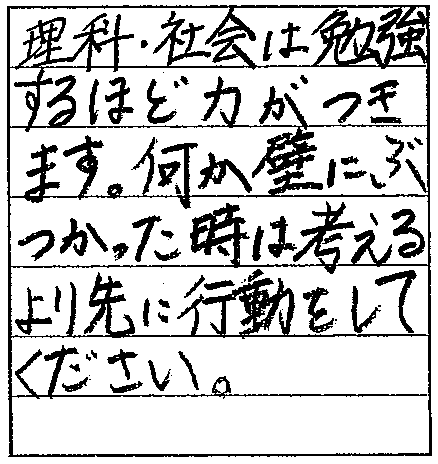 理科・社会は勉強
するほど力がつき
ます。何か壁にぶ
つかった時は考える
より先に行動をして
ください。